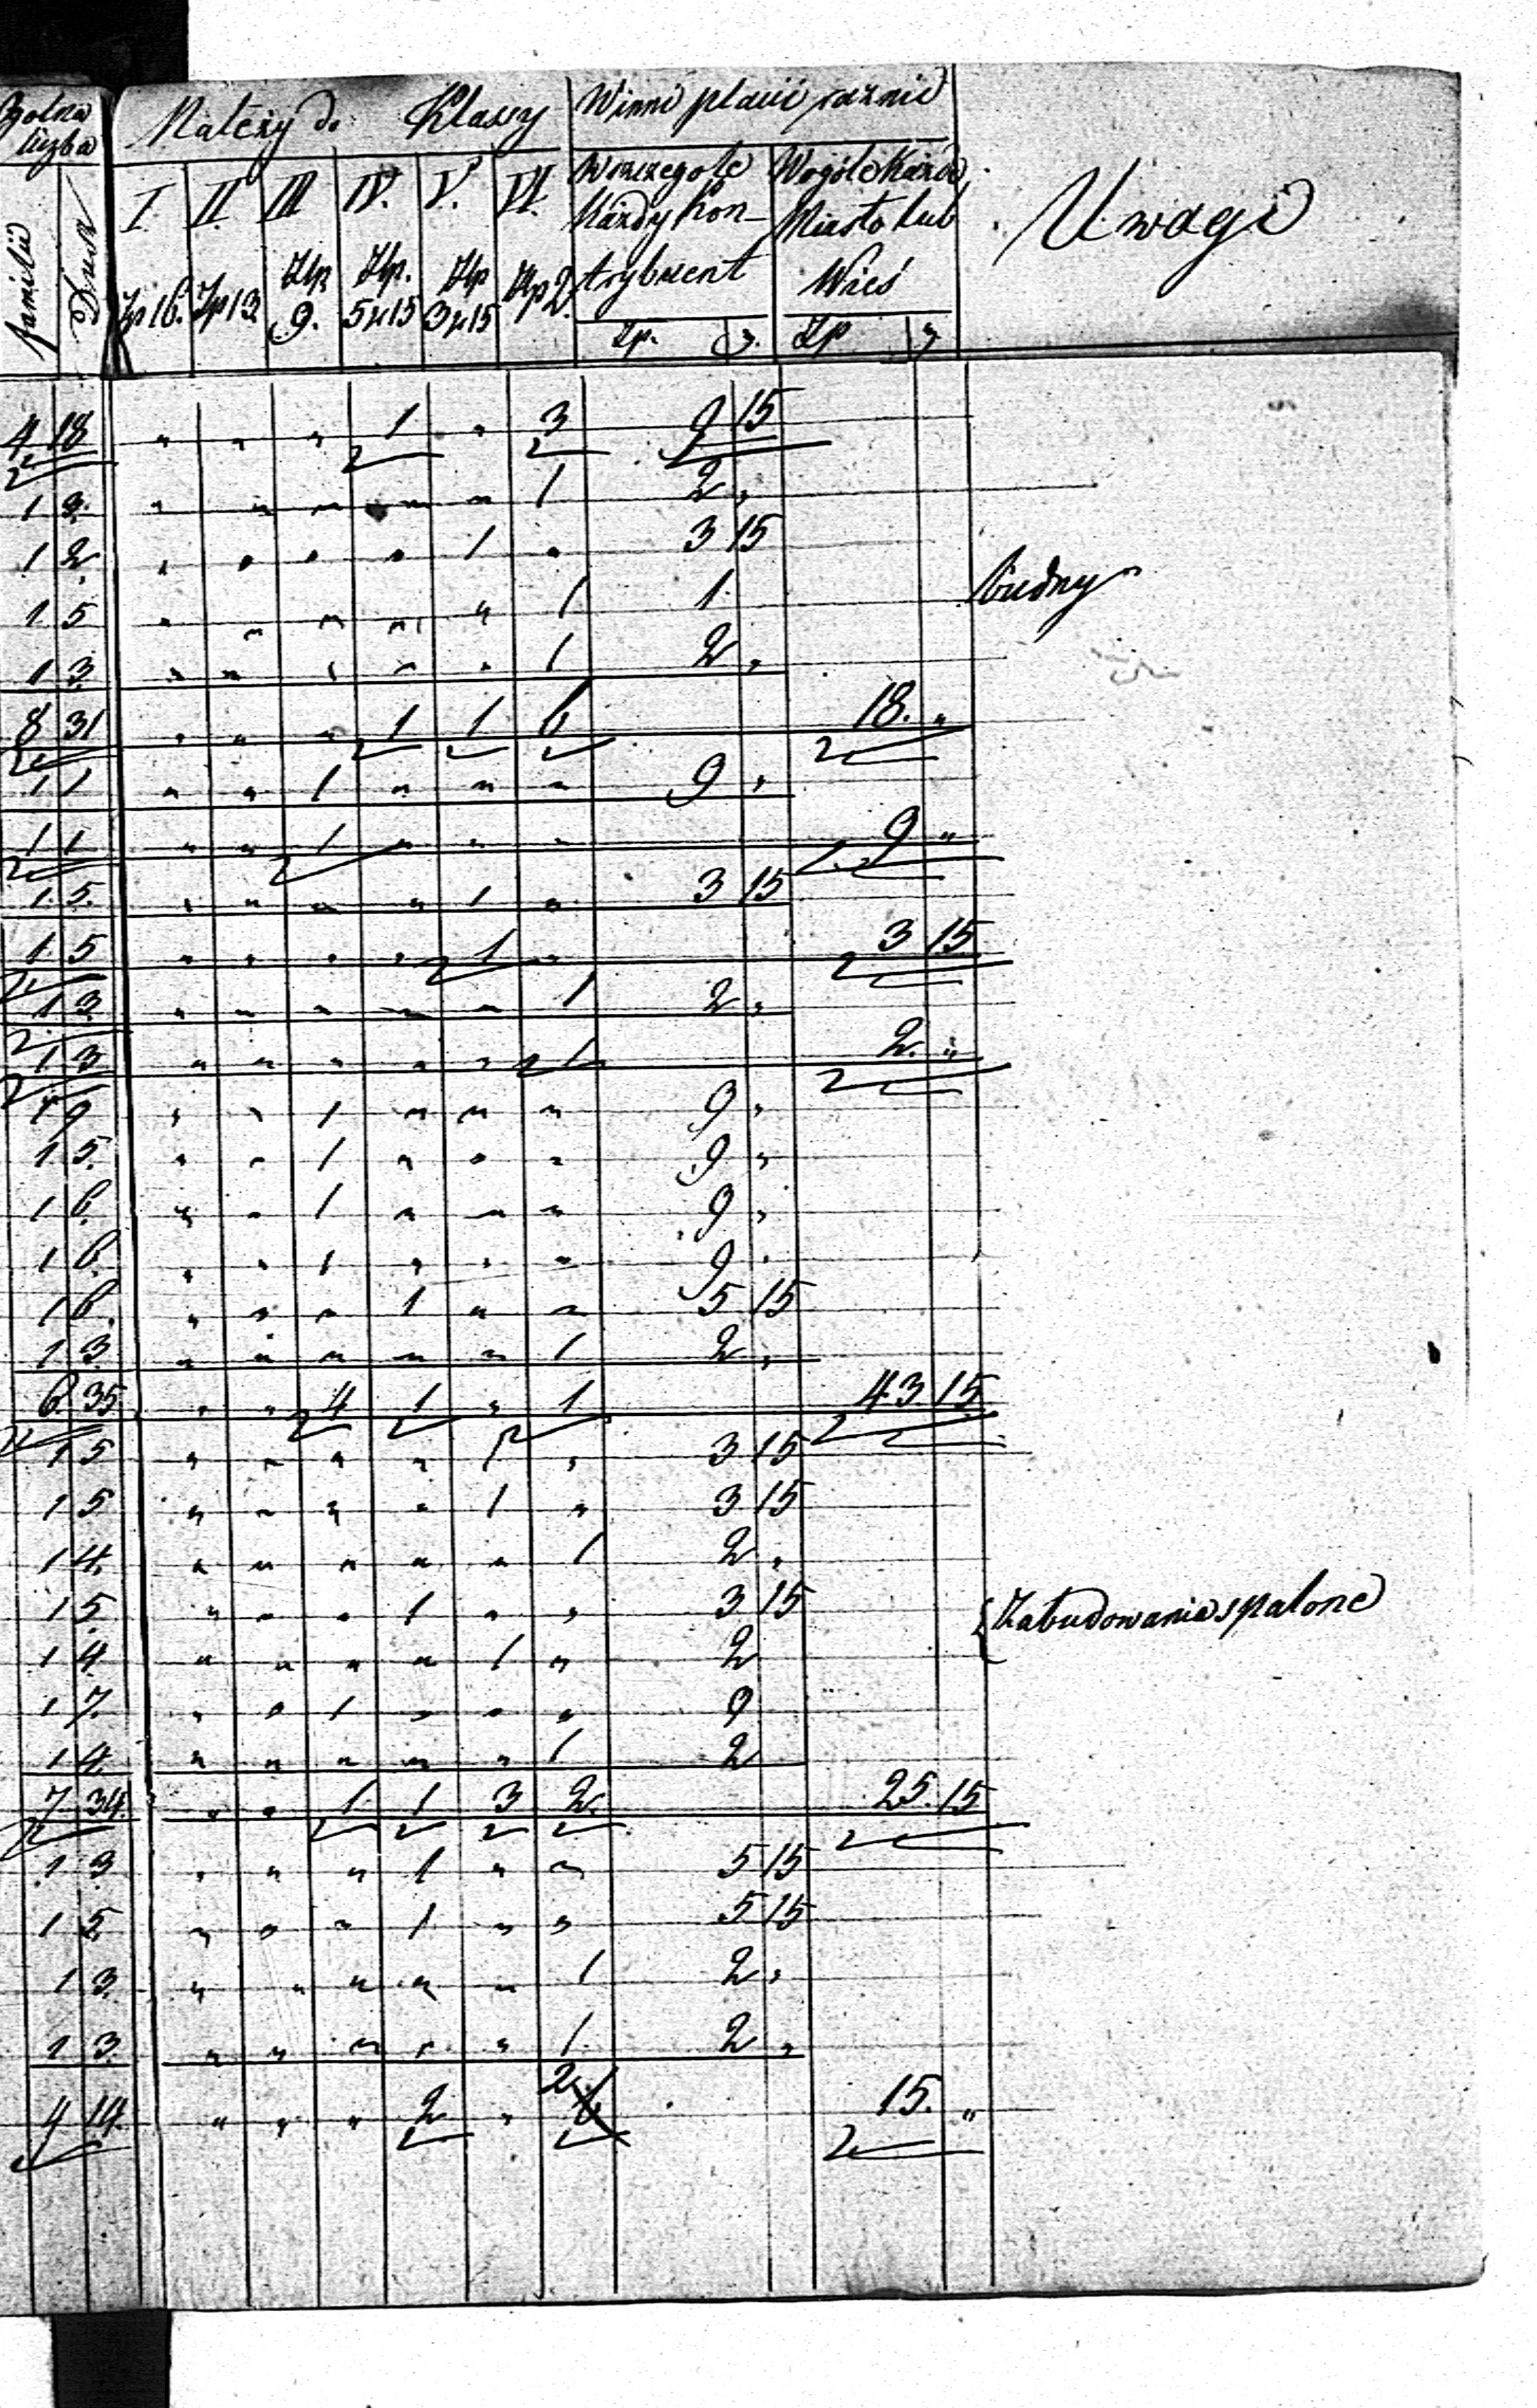 Zolna Należy do Klassy Winni płacić raźnie
liczba Wszczególe Wogóle Każde Uwagi
Familii Dusz I. II. III IV. V. VI. Każdy Kon- Miasto lub
Zp 16. Zp 13. Złp 9. Złp. 5 " 15 Złp 3 " 15 Złp 2. trybuent Wieś
Zp. g. Zp g
4 18 " " " 1 " 3 9 15
1 3. " " " " " 1 2 "
1 2 " " " " 1 " 3 15
1 5 " " " " " 1 1. biedny
1 3. " " " " " 1 2 "
8 31 " " " 1 1 6 18. "
1 1 " " 1 " " " 9 "
1 1 " " 1 " " " 9 "
1. 5. " " " " 1 " 3 15
1 5 " " " " 1 " 3 15
1 3. " " " " " 1 2 "
1 3. " " " " " 1 2. "
1 9 " " 1 " " " 9 "
1 5. " " 1 " " " 9 "
1 6. " " 1 " " " 9 "
1 6. " " 1 " " " 9 "
1 6. " " " 1 " " 5 15
1 3. " " " " " 1 2 "
6 35 " " 4 1 " 1 43 15
1 5 " " " " 1 " 3 15
1 5 " " " " 1 " 3 15
1 4. " " " " " 1 2 "
1 5. " " " 1 " " 3 15 { Zabudowania spalone
1 4. " " " " 1 " 2
1 7. " " 1 " " " 9
1 4. " " " " " 1 2
7 34 " " 1 1 3 2. 25. 15
1 3 " " " 1 " " 5 15
1 5 " " " 1 " " 5 15
1 3. " " " " " 1 2 "
1 3. " " " " " 1. 2 "
4 14 " " " 2 " 2 15. "